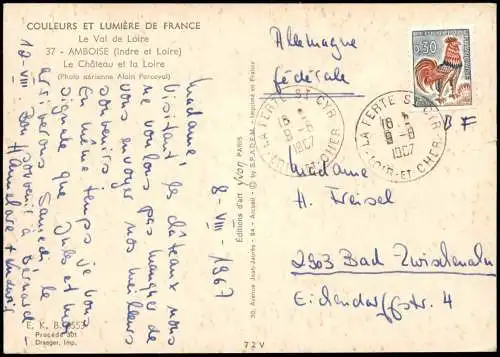 COULEURS ET LUMIÈRE DE FRANCE
Le Val de Loire
37 - AMBOISE (Indre et Loire)
Le Château et la Loire
(Photo aérienne Alain Perceval)
8-VIII-1967
Madame
Visitant les châteaux nous
ne voulons pas manquer de
vous envoyer nos meilleurs
souvenirs
En même temps je vous
signale que Jules et moi
arriverons Samedi le
18-VIII. Bon souvenir à Bernard
Hannelore + Ludwig
E. K. B. 553
Procédé 301
Draeger, Imp.
72 V
Editions d'art yvon PARIS
30, Avenue Jean-Jaurès - 94 - Arcueil - © by S.P.A.D.E.M. - Imprimé en France
0,30
LA FERTE ST CYR
18 H
9 -8
1967
LOIR-ET-CHER
LA FERTE ST CYR
18 H
9 -8
1967
LOIR-ET-CHER
Allemagne
fédérale
Madame
H. Freisel
2903 Bad Zwischenahn
Eichendorffstr. 4